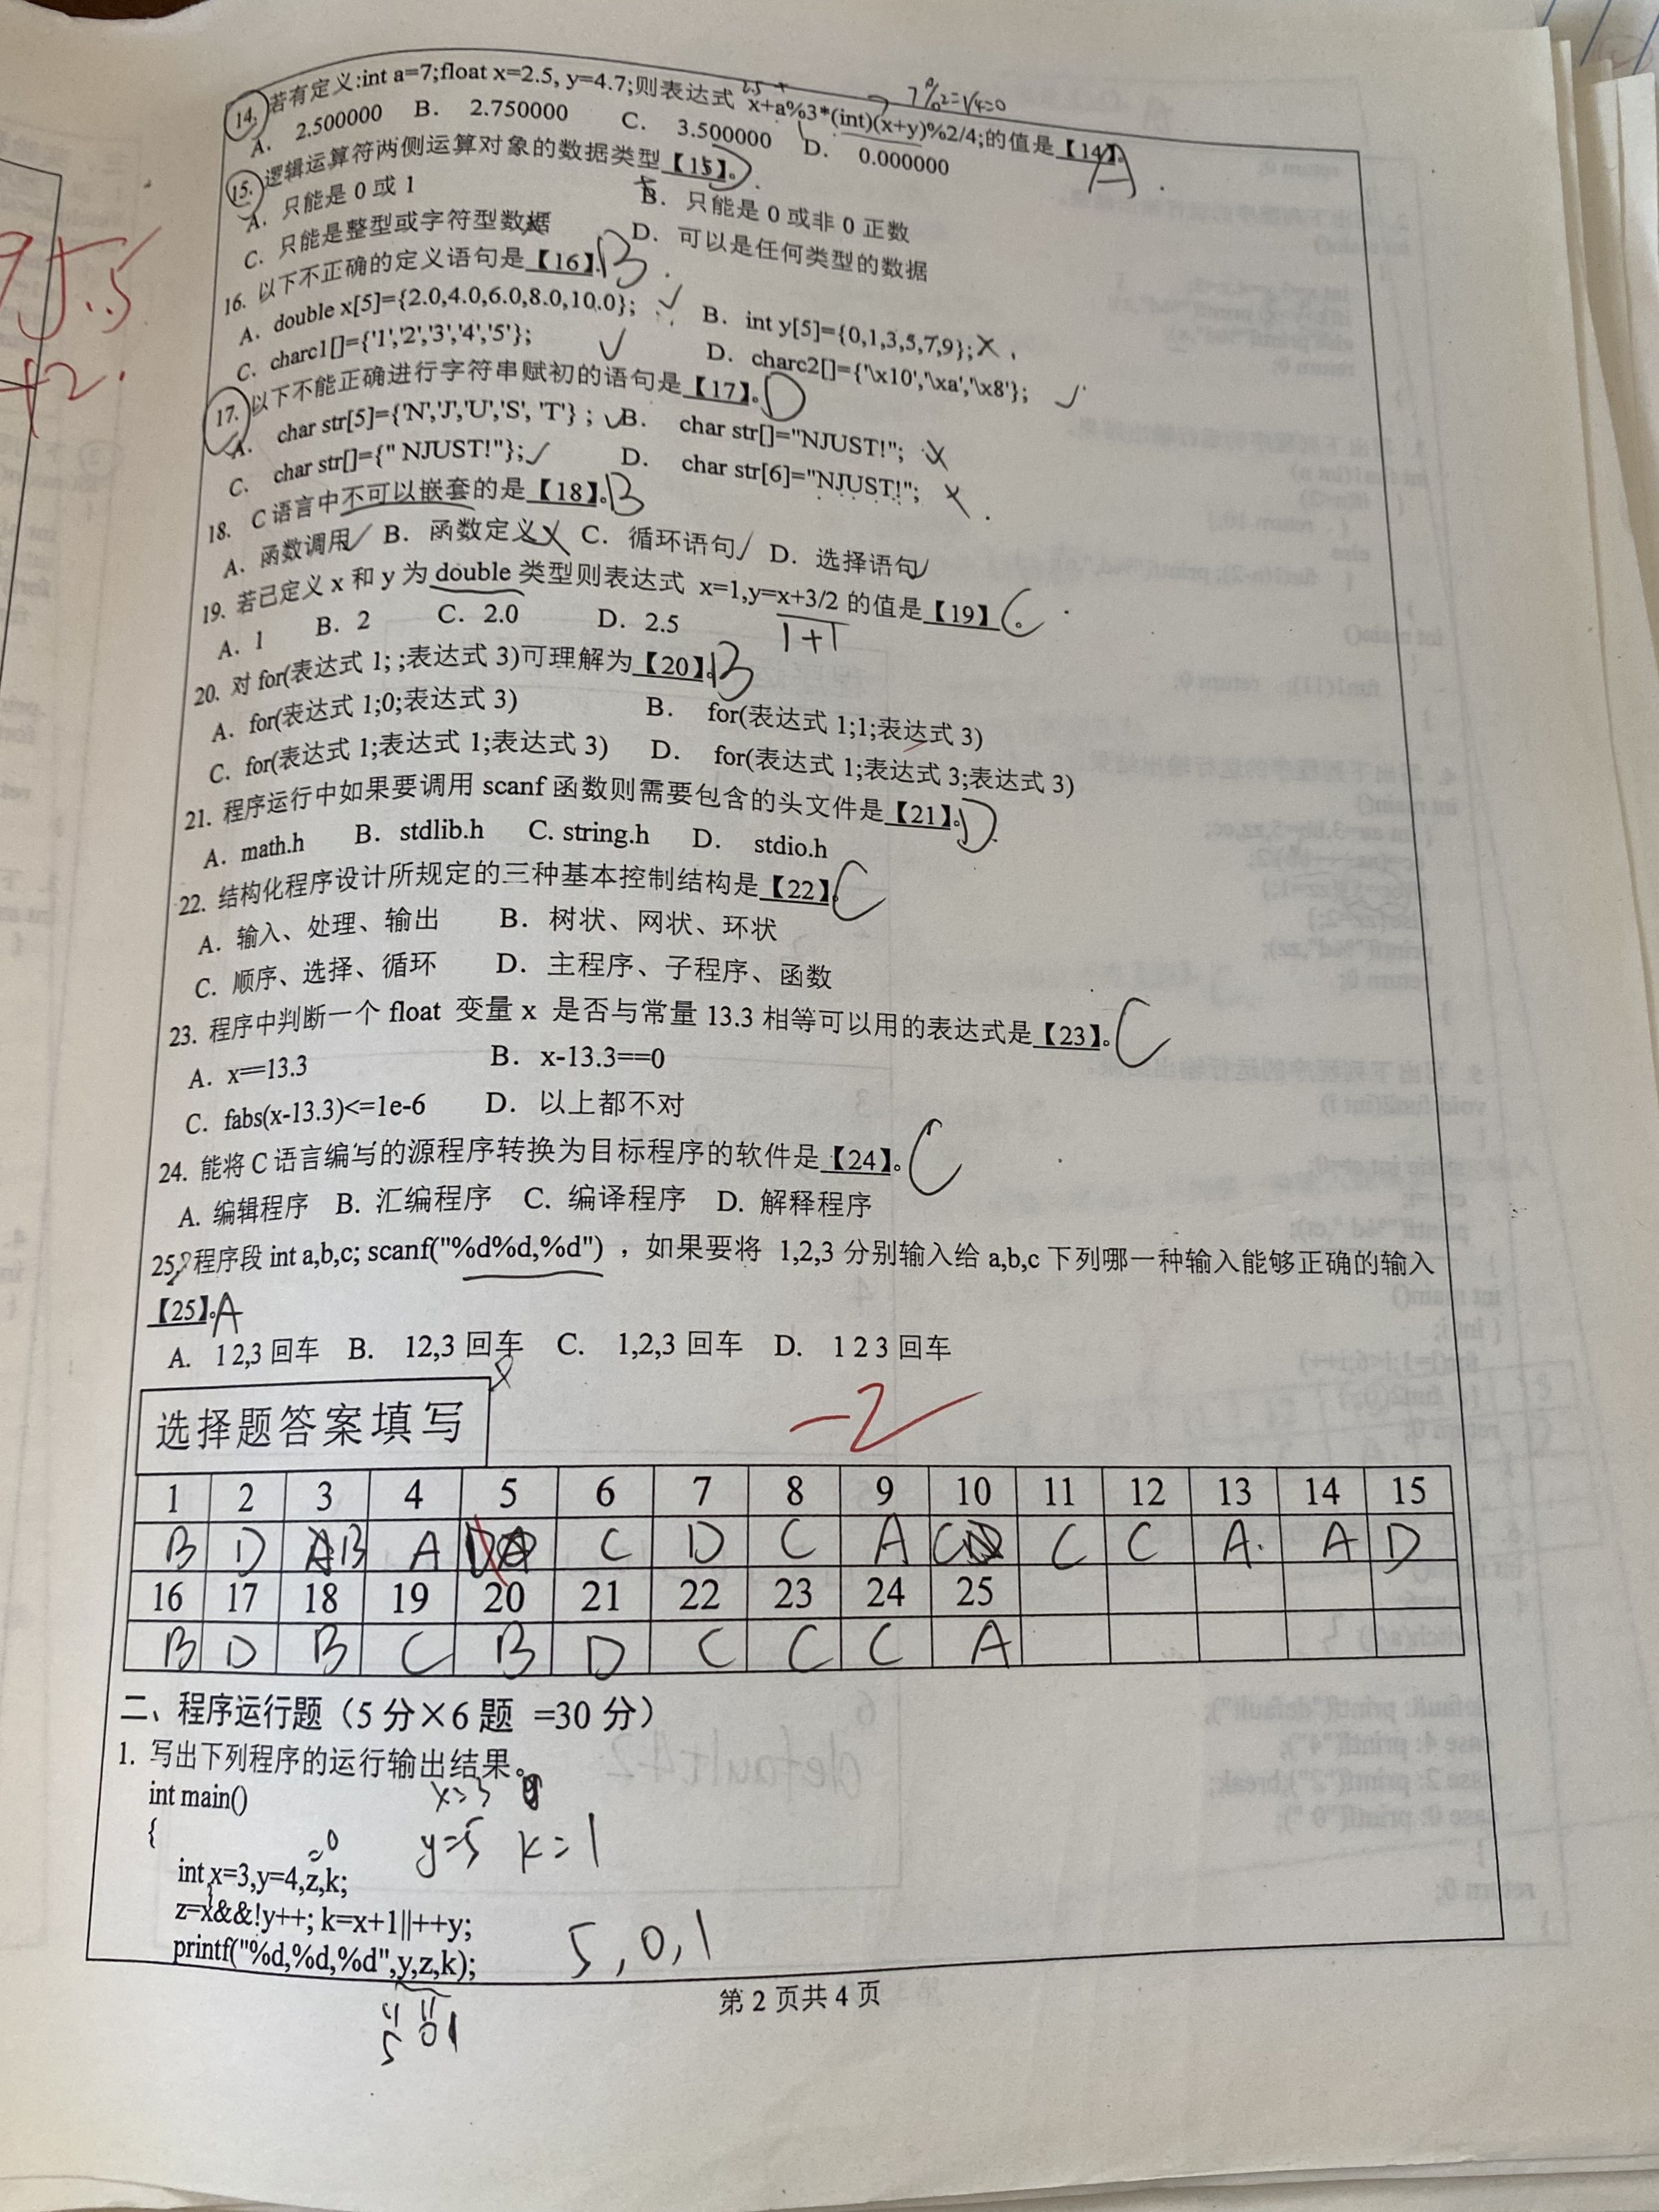 14. 若有定义:int a=7;float x=2.5, y=4.7;则表达式 x+a%3*(int)(x+y)%2/4;的值是【14】。A
2.5 +
7%2=1/4=0
A. 2.500000 B. 2.750000 C. 3.500000 D. 0.000000
15. 逻辑运算符两侧运算对象的数据类型【15】。D
A. 只能是 0 或 1 B. 只能是 0 或非 0 正数
C. 只能是整型或字符型数据 D. 可以是任何类型的数据
16. 以下不正确的定义语句是【16】。B
A. double x[5]={2.0,4.0,6.0,8.0,10.0}; B. int y[5]={0,1,3,5,7,9};
C. charc1[]={'1','2','3','4','5'}; D. charc2[]={'\x10','\xa','\x8'};
17. 以下不能正确进行字符串赋初的语句是【17】。D
A. char str[5]={'N','J','U','S', 'T'} ; B. char str[]="NJUST!";
C. char str[]={" NJUST!"}; D. char str[6]="NJUST!";
18. C 语言中不可以嵌套的是【18】。B
A. 函数调用 B. 函数定义 C. 循环语句 D. 选择语句
19. 若已定义 x 和 y 为 double 类型则表达式 x=1,y=x+3/2 的值是【19】。C
A. 1 B. 2 C. 2.0 D. 2.5
1+1
20. 对 for(表达式 1; ;表达式 3)可理解为【20】。B
A. for(表达式 1;0;表达式 3) B. for(表达式 1;1;表达式 3)
C. for(表达式 1;表达式 1;表达式 3) D. for(表达式 1;表达式 3;表达式 3)
21. 程序运行中如果要调用 scanf 函数则需要包含的头文件是【21】。D
A. math.h B. stdlib.h C. string.h D. stdio.h
22. 结构化程序设计所规定的三种基本控制结构是【22】。C
A. 输入、处理、输出 B. 树状、网状、环状
C. 顺序、选择、循环 D. 主程序、子程序、函数
23. 程序中判断一个 float 变量 x 是否与常量 13.3 相等可以用的表达式是【23】。C
A. x==13.3 B. x-13.3==0
C. fabs(x-13.3)<=1e-6 D. 以上都不对
24. 能将 C 语言编写的源程序转换为目标程序的软件是【24】。C
A. 编辑程序 B. 汇编程序 C. 编译程序 D. 解释程序
25. 程序段 int a,b,c; scanf("%d%d,%d") ，如果要将 1,2,3 分别输入给 a,b,c 下列哪一种输入能够正确的输入
【25】。A
A. 1 2,3 回车 B. 12,3 回车 C. 1,2,3 回车 D. 1 2 3 回车
选择题答案填写
-2
1 2 3 4 5 6 7 8 9 10 11 12 13 14 15
B D B A D C D C A C C C A. A D
16 17 18 19 20 21 22 23 24 25
B D B C B D C C C A
二、程序运行题（5 分×6 题 =30 分）
1. 写出下列程序的运行输出结果。
int main()
x=3
{
=0
y=5 k=1
int x=3,y=4,z,k;
z=x&&!y++; k=x+1||++y;
printf("%d,%d,%d",y,z,k);
5,0,1
第 2 页共 4 页
5 0 1